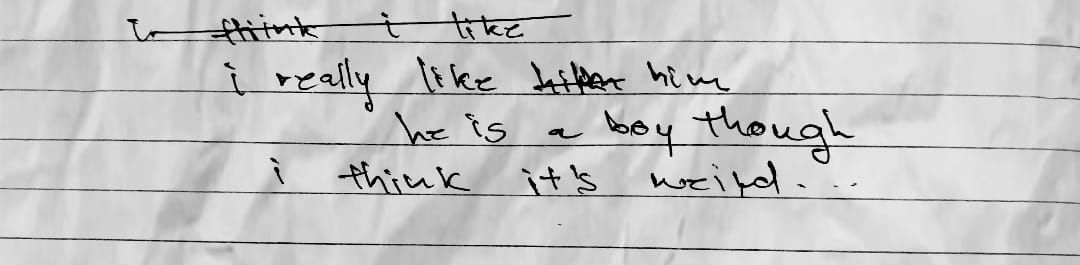 i think i like
i really like him
he is a boy though
i think it's weird...